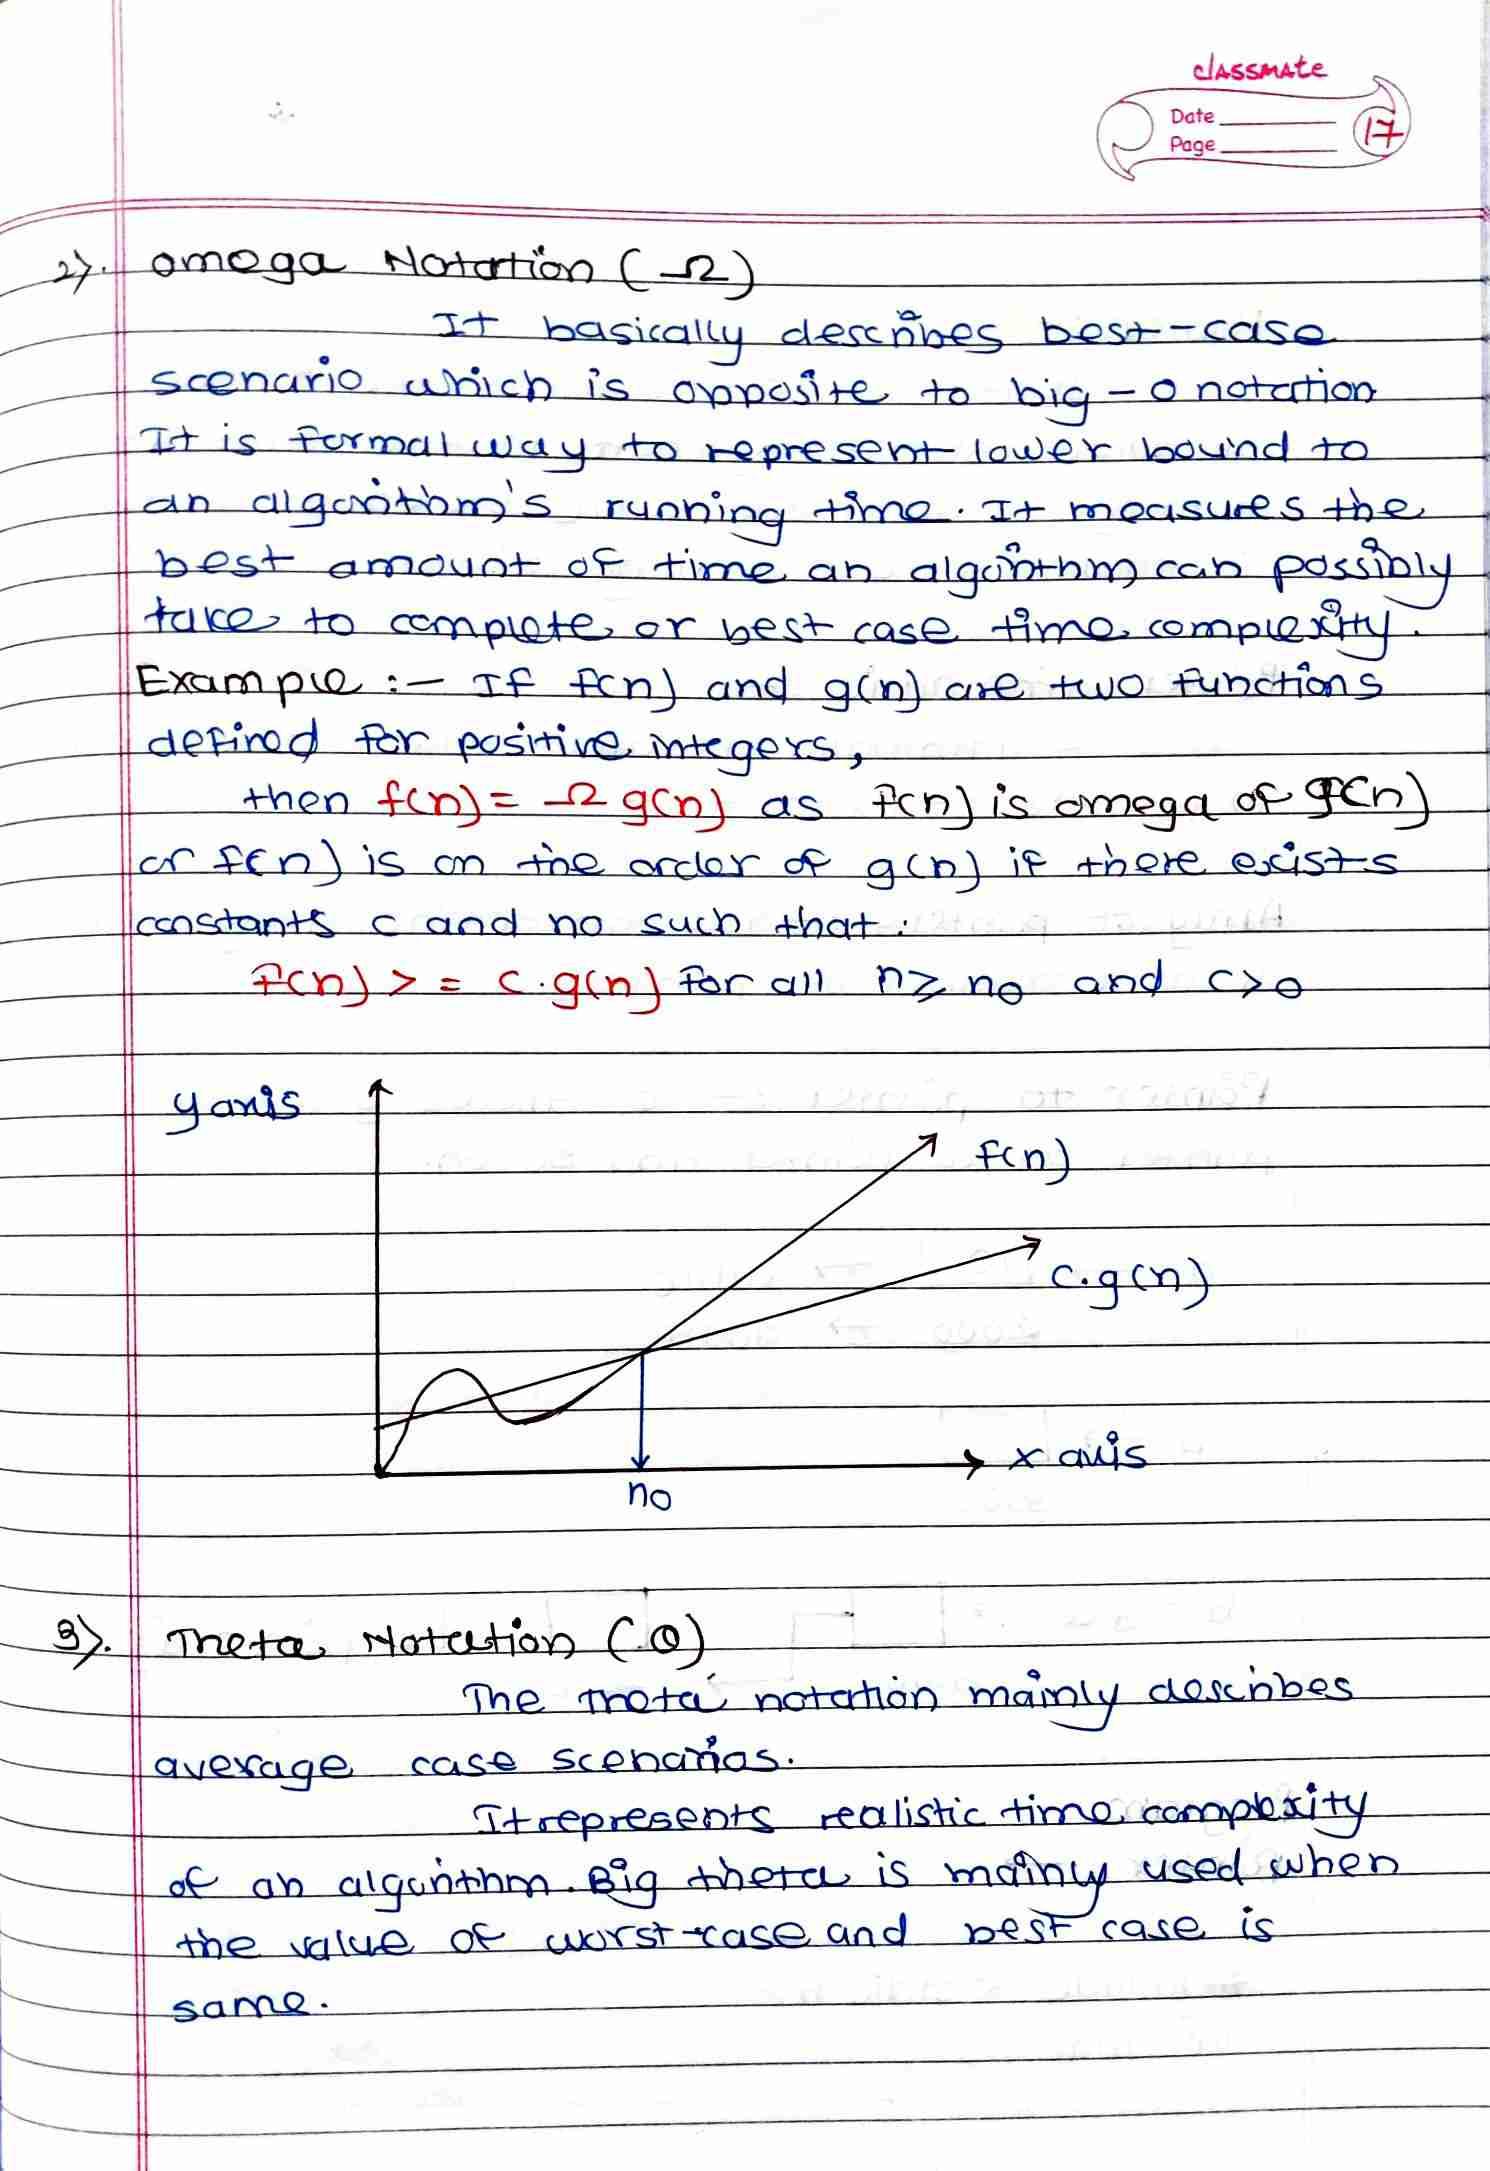 classmate
Date
Page
17
2). Omega Notation (Ω)
It basically describes best-case
scenario which is opposite to big-o notation
It is formal way to represent lower bound to
an algorithm's running time. It measures the
best amount of time an algorithm can possibly
take to complete or best case time complexity.
Example :- If f(n) and g(n) are two functions
defined for positive integers,
then f(n) = Ω g(n) as f(n) is omega of g(n)
or f(n) is on the order of g(n) if there exists
constants c and no such that:
f(n) >= c.g(n) for all n ≥ n0 and c>0
y axis
f(n)
c.g(n)
x axis
n0
3). Theta Notation (θ)
The theta notation mainly describes
average case scenarios.
It represents realistic time complexity
of an algorithm. Big theta is mainly used when
the value of worst-case and best case is
same.